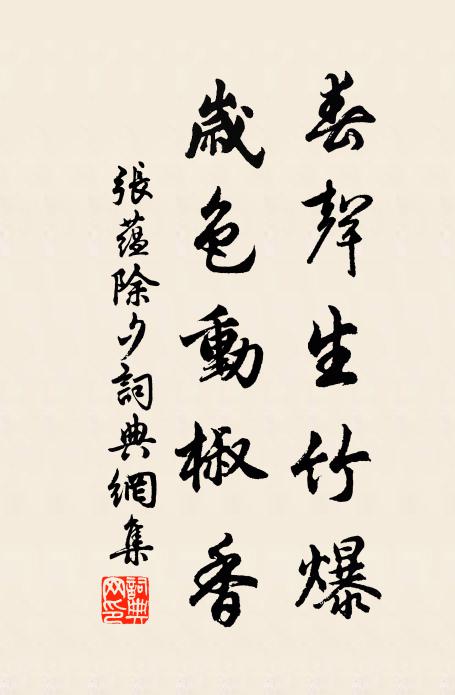 春聲生竹爆
歲色動椒香
張蘊除夕詞典網集
詞典網印